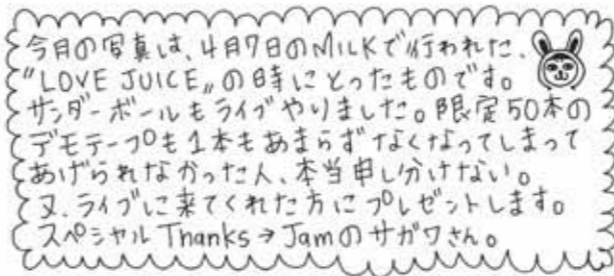 今月の写真は、4月7日のMILKで行われた、
"LOVE JUICE"の時にとったものです。
サンダーボールもライブやりました。限定50本の
デモテープも1本もあまらずなくなってしまって
あげられなかった人、本当申し分けない。
又、ライブに来てくれた方にプレゼントします。
スペシャルThanks→Jamのサガワさん。